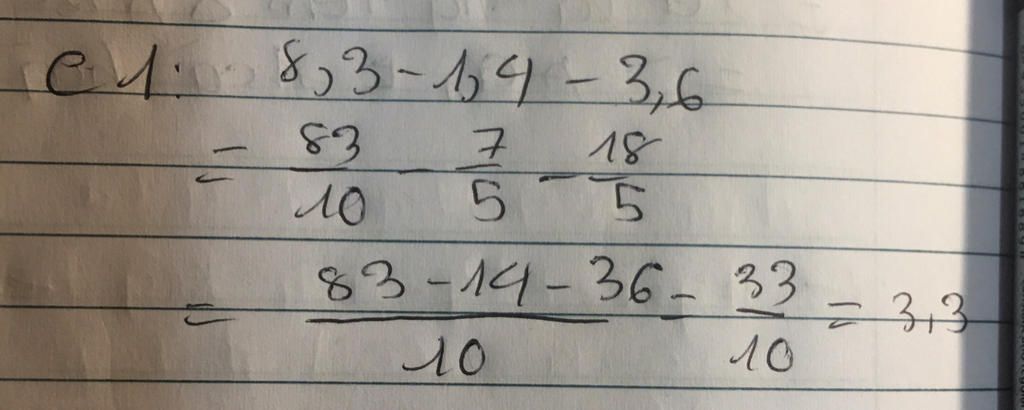 C1: 8,3 - 1,4 - 3,6
= 83/10 - 7/5 - 18/5
= (83 - 14 - 36)/10 = 33/10 = 3,3